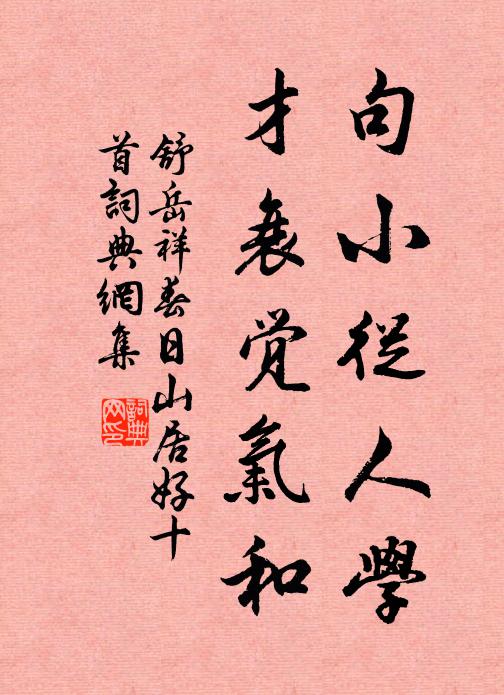 句小從人學
才衰覺氣和
舒岳祥春日山居好十
首詞典網集
詞典
网印